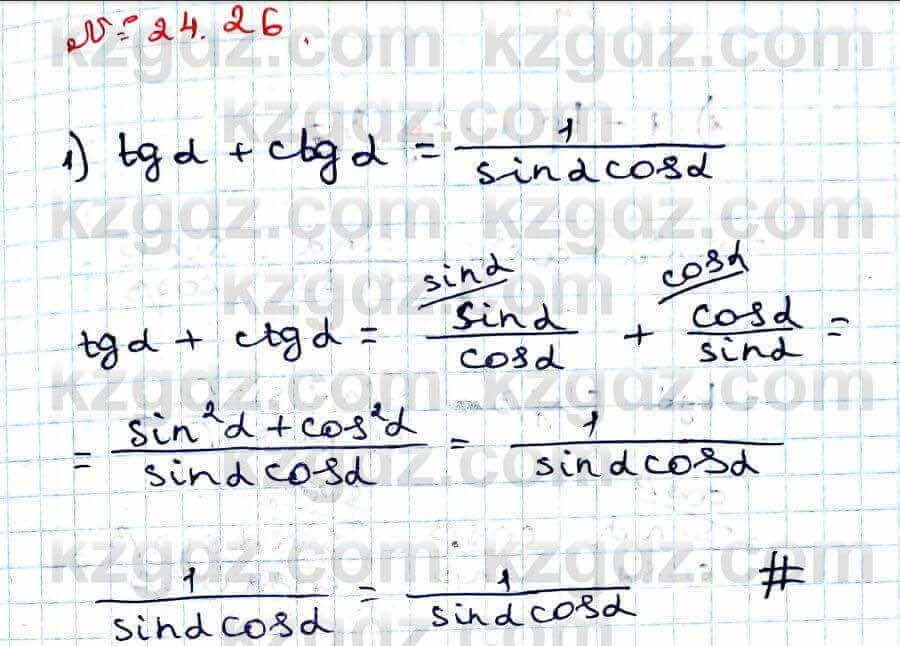 № 24.26.
1) tgα + ctgα = 1/(sinα cosα)
tgα + ctgα = sinα/cosα (sinα + cosα/sinα (cosα =
= (sin²α + cos²α)/(sinα cosα) = 1/(sinα cosα)
1/(sinα cosα) = 1/(sinα cosα) #
kzgdz.com kzgdz.com
kzgdz.com kzgdz.com
kzgdz.com kzgdz.com
kzgdz.com kzgdz.com
kzgdz.com kzgdz.com
kzgdz.com kzgdz.com
kzgdz.com kzgdz.com